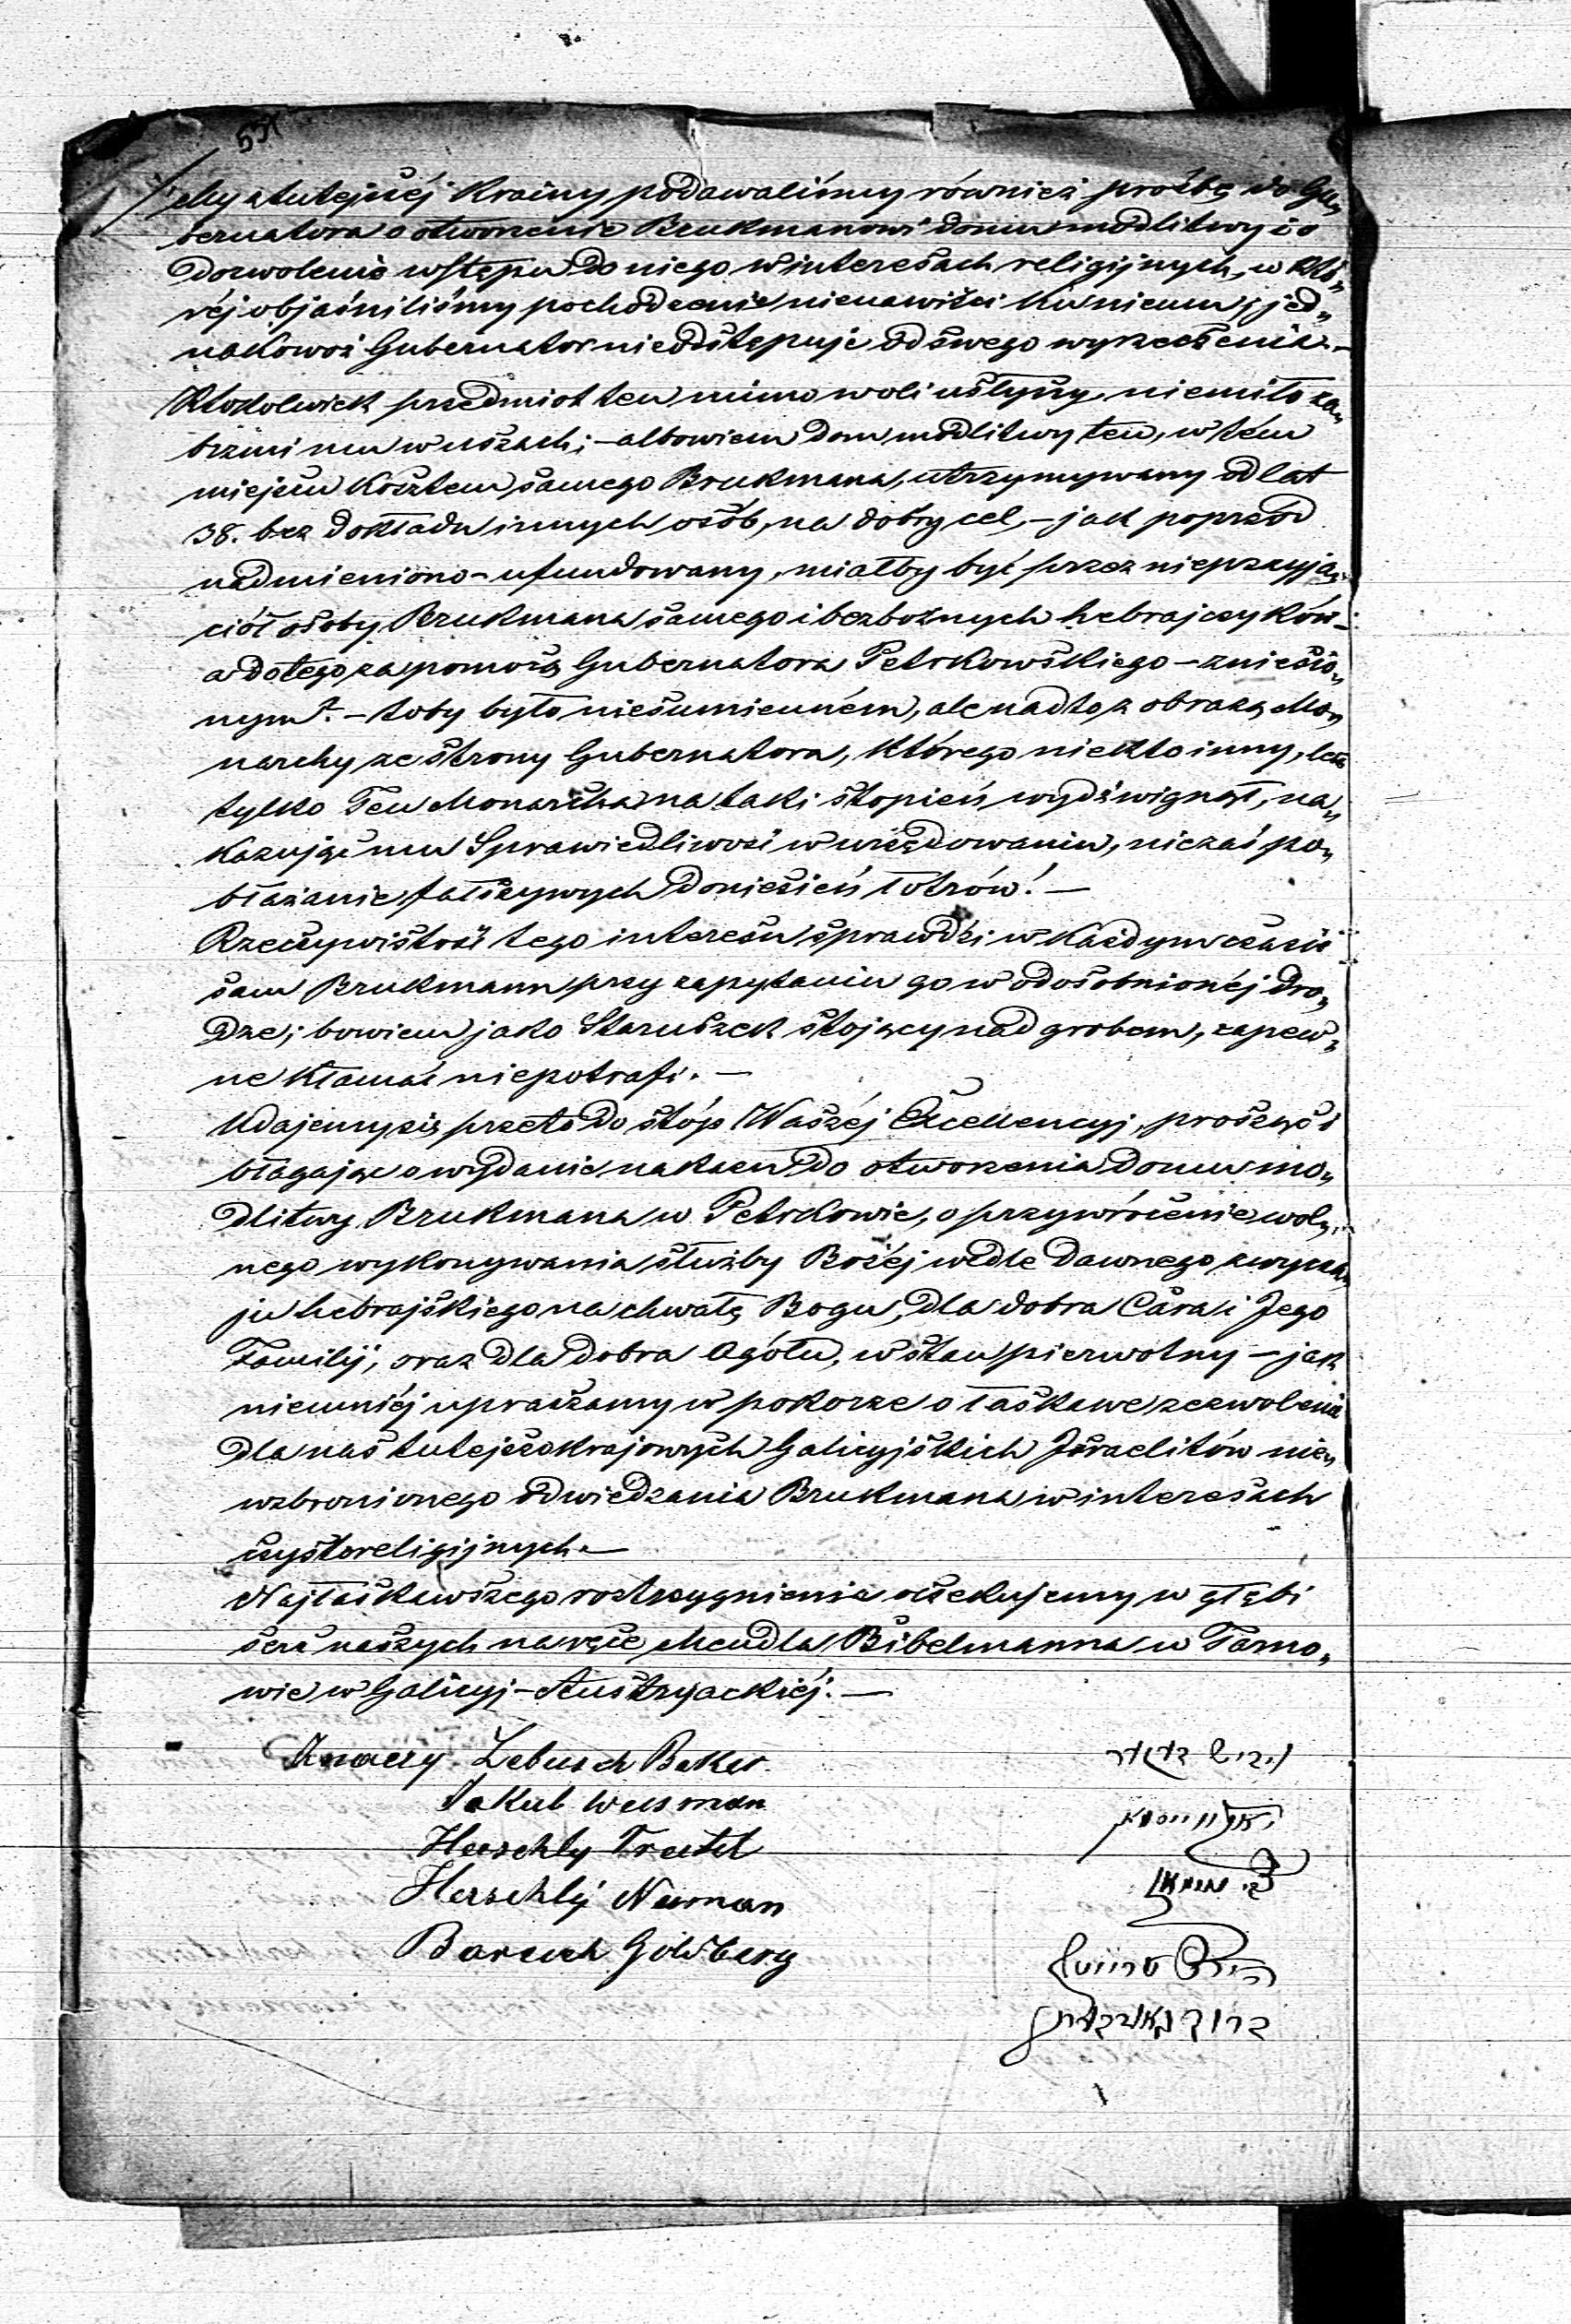 531
My z tutejszéj Krainy podawaliśmy również prośbę do Gu„
bernatora o otworzenie Brukmanowi domu modlitwy i o
dozwolenie wstępu do niego w interesach religijnych, w któ„
réj objaśniliśmy pochodzenie nienawiści ku niemu, jed„
nakowoż Gubernator nieodstępuje od swego wyrzeczenia. –
Ktokolwiek przedmiot ten mimo woli usłyszy, niemiło za„
brzmi mu w uszach; – albowiem dom modlitwy ten, w tém
miejscu kosztem samego Brukmana, utrzymywany od lat
38. bez dokładu innych osób, na dobry cel, – jak poprzód
nadmieniono – ufundowany, miałby być przez nieprzyja„
ciół osoby Brukmana samego i bezbożnych hebrajczyków –
a do tego za pomocą Gubernatora Petrkowskiego – zniesio„
nym? – toby było niesumienném, ale nadto z obrazą Mo„
narchy ze strony Gubernatora, którego niekto inny, lecz
tylko Ten Monarcha na taki stopień wydźwignął, na„
kazując mu Sprawiedliwość w urzędowaniu, niezaś po„
błażanie fałszywych doniesień łotrów! –
Rzeczywistość tego interesu sprawdzi w każdym czasie
sam Brukmann przy zapytaniu go w odosobnionéj dro„
dze; bowiem jako Staruszek stojący nad grobem, zapew„
ne kłamać niepotrafi. –
Udajemy się przeto do stóp Waszéj Excellencyj, prosząc i
błagając o wydanie nakazu do otworzenia domu mo„
dlitwy Brukmana w Petrkowie, o przywrócenie wol„
nego wykonywania służby Bożéj wedle dawnego zwycza„
ju hebrajskiego na chwałę Bogu, dla dobra Cara i Jego
Familij, oraz dla dobra Ogółu, w stan pierwotny – jak
niemniéj upraszamy w pokorze o łaskawe zezwolenie
dla nas tutejszokrajowych Galicyjskich Israelitów nie„
wzbronionego odwiedzania Brukmana w interesach
czysto religijnych. –
Najłaskawszego rostrzygnienia oczekujemy w głębi
serc naszych na ręce Mendla Bibelmanna w Tarno„
wie w Galicyj – Austryackiéj. –
Lebusch Beker
Jakub Weisman
Herschly Treitel
Herschly Neuman
Baruch Goldberg
צבי נוימאן
הירש טרייטל
ברוך גאלדבערג